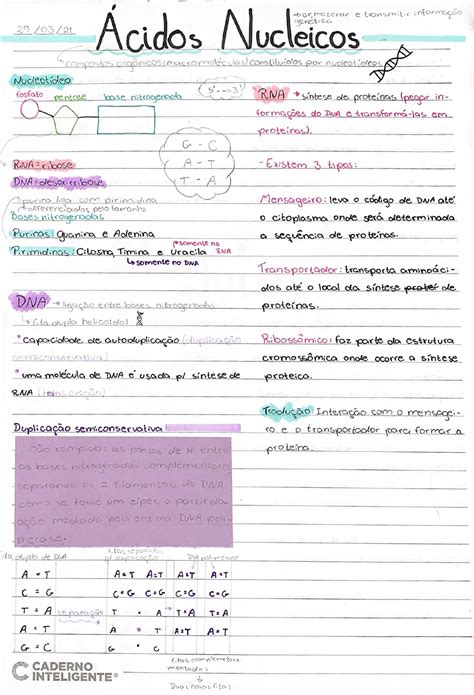 29/03/21
Ácidos Nucleicos
→ armazenar e transmitir informação genética
↳ compostos orgânicos (macromoléculas) constituídos por nucleotídeos
Nucleotídeo
fosfato pentose base nitrogenada
5' --→ 3'
G - C
A - T
T - A
RNA = ribose
DNA = desoxirribose
purina liga com pirimidina
→ diferenciadas pelo tamanho
Bases nitrogenadas
Purinas: Guanina e Adenina
Pirimidinas: Citosina, Timina e Uracila
↳ somente no DNA
somente no RNA
DNA → ligação entre bases nitrogenadas
↳ fita dupla helicoidal
* capacidade de autoduplicação (duplicação
semiconservativa)
* uma molécula de DNA é usada p/ síntese de
RNA (transcrição)
Duplicação semiconservativa
São rompidas as pontes de H entre
as bases nitrogenadas complementares,
separando os 2 filamentos de DNA
como se fosse um zíper, a partir da
ação mediada pela enzima DNA-poli-
merase.
fita dupla de DNA
fitas separadas
p/ duplicação
DNA polimerase
A = T A=T A=T A=T A=T
C = G C=G C=G C=G C=G
T = A separação T • A T=A T=A
A = T A • T A=T A=T
G = C G • C
fitas complementares
mentadas
Duas novas fitas
RNA → síntese de proteínas (pegar in-
formações do DNA e transformá-las em
proteínas).
- Existem 3 tipos:
Mensageiro: leva o código de DNA até
o citoplasma onde será determinada
a sequência de proteínas.
Transportador: transporta aminoáci-
dos até o local da síntese de
proteínas.
Ribossômico: faz parte da estrutura
cromossômica onde ocorre a síntese
proteica.
Tradução: Interação com o mensagei-
ro e o transportador para formar a
proteína.
CADERNO
INTELIGENTE®